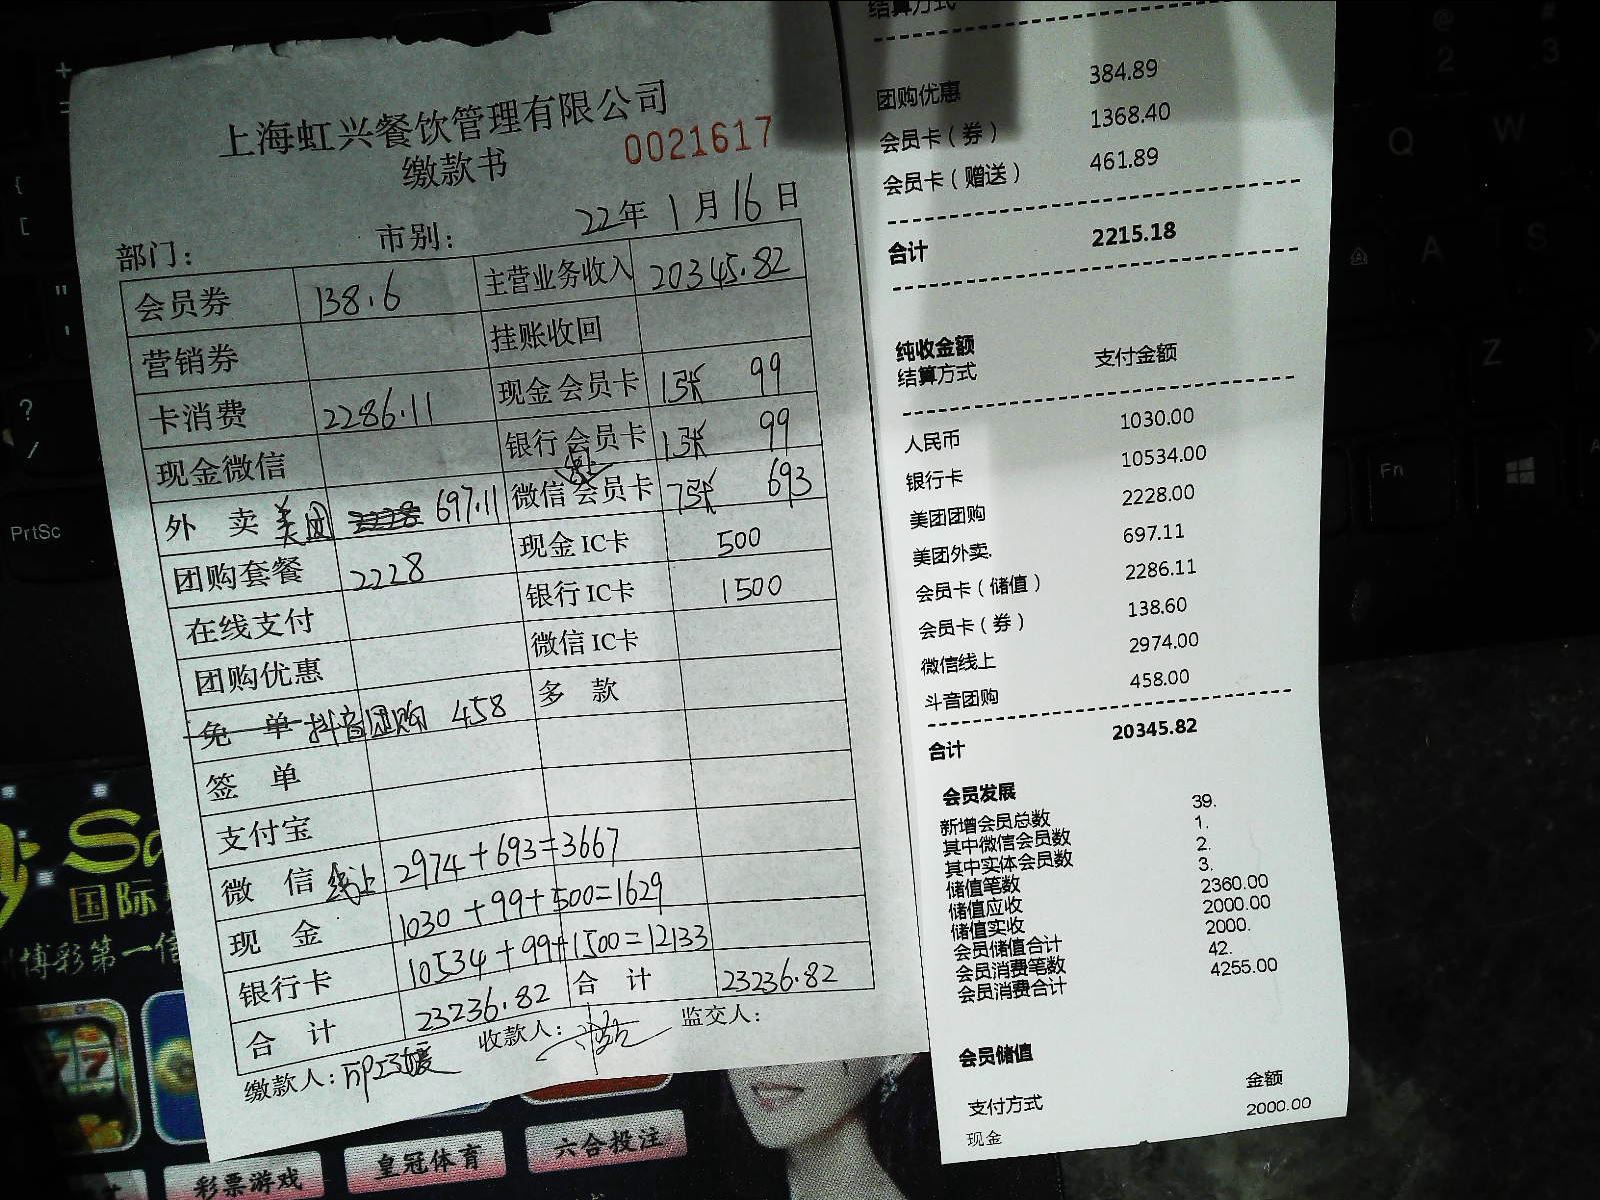 上海虹兴餐饮管理有限公司
缴款书
0021617
22年 1月16日
部门: 市别:
会员券 138.6 主营业务收入 20345.82
营销券 挂账收回
卡消费 2286.11 现金会员卡 1张 99
现金微信 银行会员卡 1张 99
外 卖 美团 697.11 微信 线上 会员卡 7张 693
团购套餐 2228 现金IC卡 500
在线支付 银行IC卡 1500
团购优惠 微信IC卡
免 单 抖音团购 458 多 款
签 单
支付宝
微 信 线上 2974+693=3667
现 金 1030+99+500=1629
银行卡 10534+99+1500=12133
合 计 23236.82 合 计 23236.82
缴款人: 收款人: 监交人:
结算方式
团购优惠 384.89
会员卡(券) 1368.40
会员卡(赠送) 461.89
合计 2215.18
纯收金额
结算方式 支付金额
人民币 1030.00
银行卡 10534.00
美团团购 2228.00
美团外卖. 697.11
会员卡(储值) 2286.11
会员卡(券) 138.60
微信线上 2974.00
斗音团购 458.00
合计 20345.82
会员发展
新增会员总数 39.
其中微信会员数 1.
其中实体会员数 2.
储值笔数 3.
储值应收 2360.00
储值实收 2000.00
会员储值合计 2000.
会员消费笔数 42.
会员消费合计 4255.00
会员储值
支付方式 金额
现金 2000.00
PrtSc
Fn
Q
W
A
S
Z
国际
博彩第一信
彩票游戏
皇冠体育
六合投注